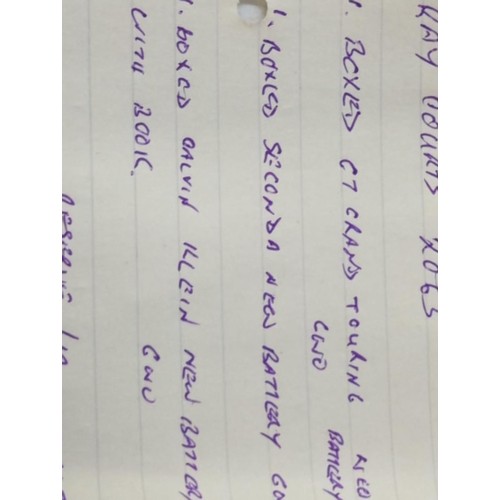 RAY 2063
1. BOXED GT GRAND TOURING NEW BATTERY
GWO
1. BOXED SECONDA NEW BATTERY GO
1. BOXED CALVIN KLEIN NEW BATTERY
WITH BOOK. GWO